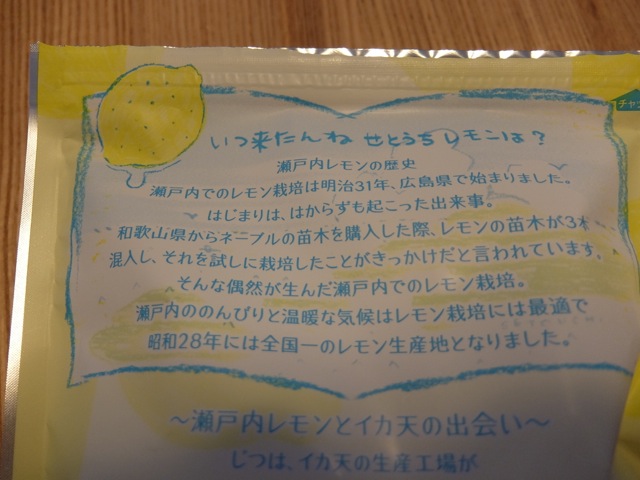 いつ来たんね せとうちレモンは?
瀬戸内レモンの歴史
瀬戸内でのレモン栽培は明治31年、広島県で始まりました。
はじまりは、はからずも起こった出来事。
和歌山県からネーブルの苗木を購入した際、レモンの苗木が3本
混入し、それを試しに栽培したことがきっかけだと言われています。
そんな偶然が生んだ瀬戸内でのレモン栽培。
瀬戸内ののんびりと温暖な気候はレモン栽培には最適で
昭和28年には全国一のレモン生産地となりました。
~瀬戸内レモンとイカ天の出会い~
じつは、イカ天の生産工場が